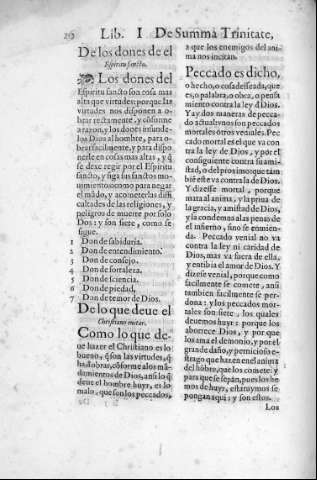 Lib. I De Summa Trinitate,
De los dones de el
Espiritu sancto.
Los dones del
Espiritu sancto son cosa mas
alta que virtudes: porque las
virtudes nos disponen a o-
brar rectamente, y cõforme
a razon, y los dones infunde-
los Dios al hombre, para o-
brar facilmente, y para dispo-
nerle en cosas mas altas, y q̃
se dexe regir por el Espiritu
sancto, y siga sus sanctos mo-
uimientos: como para negar
el mũdo, y acometer las diffi-
cultades de las religiones, y
peligros de muerte por solo
Dios: y son siete, como se
sigue.
1 Don de sabiduria.
2 Don de entendimiento.
3 Don de consejo.
4 Don de fortaleza.
5 Don de sciencia.
6 Don de piedad.
7 Don de temor de Dios.
De lo que deue el
Christiano euitar.
Como lo que de-
ue hazer el Christiano es lo
bueno, q̃ son las virtudes, q̃
hasta obras, cõforme a los mã-
damientos de Dios, ansi lo q̃
deue el hombre huyr, es lo
malo, que son los peccados,
a que los enemigos del ani-
ma nos incitan.
Peccado es dicho,
o hecho, o cosa desseada, que
es, o palabra, o obra, o pensa
miento contra la ley d̃ Dios.
Y ay dos maneras de pecca-
do actual: vnos son peccados
mortales otros veniales. Pec
cado mortal es el que va con
tra la ley de Dios, y por el
consiguiente contra su amis-
tad, o del proximo: que tam
biẽ este va contra la de Dios.
Y dizesse mortal, porque
mata al anima, y la priua de
la gracia, y amistad de Dios,
y la condemna a las penas de
el infierno, sino se enmien-
da. Peccado venial no va
contra la ley ni caridad de
Dios, mas va fuera de ella,
y entibia el amor de Dios. Y
dizese venial, porque como
facilmente se comete, ansi
tambien facilmente se per-
dona: y los peccados morta-
les son siete, los quales
deuemos huyr: porque los
aborrece Dios, y por que
los ama el demonio, y por el
gran daño, y pernicioso es-
trago que hazen en el anima
del hõbre, que los comete: y
para que se sepan, pues los he
mos de huyr, es taruymos se
pongan aqui: y son estos.
Los